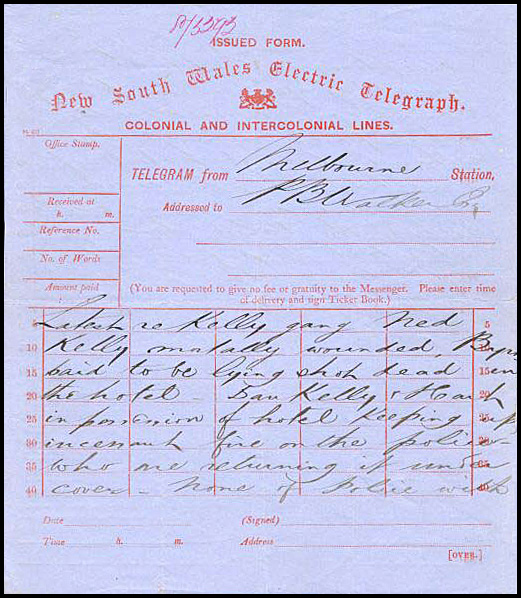 8/3393
ISSUED FORM.
New South Wales Electric Telegraph.
COLONIAL AND INTERCOLONIAL LINES.
Office Stamp.
TELEGRAM from Melbourne Station,
Addressed to P B Walker Esq
Received at
h. m.
Reference No.
No. of Words
Amount paid
:
(You are requested to give no fee or gratuity to the Messenger. Please enter time
of delivery and sign Ticket Book.)
5 Latest re Kelly gang Ned 5
10 Kelly mortally wounded, Byrne 10
15 said to be lying shot dead in 15
20 the hotel Dan Kelly & Hart 20
25 in possession of hotel Keeping up 25
30 incessant fire on the police 30
35 who are returning it under 35
40 cover - None of Police with 40
Date (Signed)
Time h. m. Address
[OVER.]